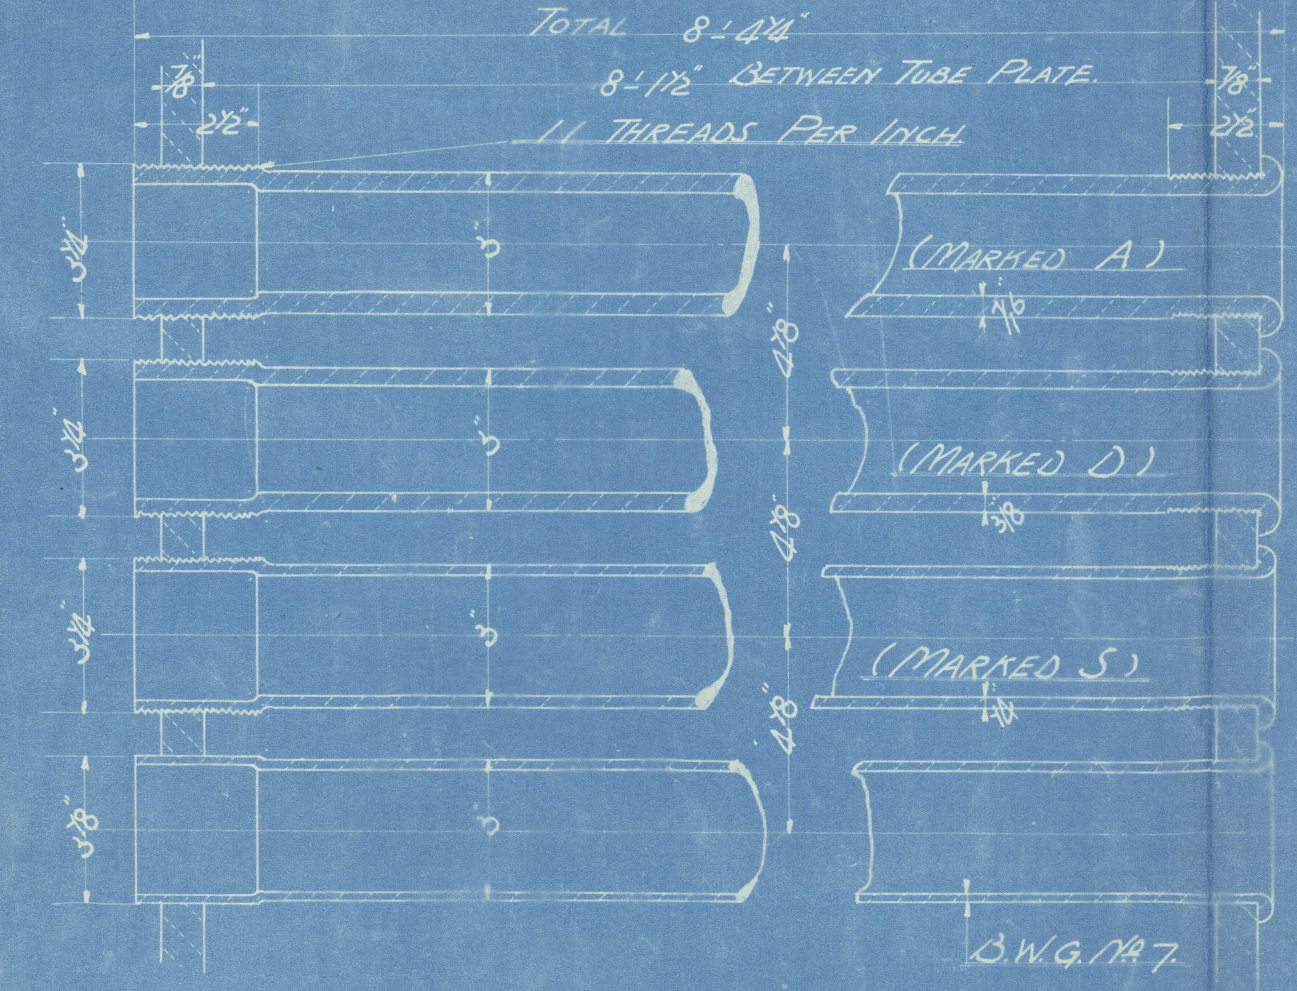 TOTAL 8'-4¼"
8'-1½" BETWEEN TUBE PLATE.
⅞" ⅞"
2½" 2½"
11 THREADS PER INCH
3¼" 3" (MARKED A)
4⅛"
3¼" 3" (MARKED D)
3/8"
4⅛"
3¼" 3" (MARKED S)
¼"
4⅛"
3⅛" 3"
B.W.G. No 7.